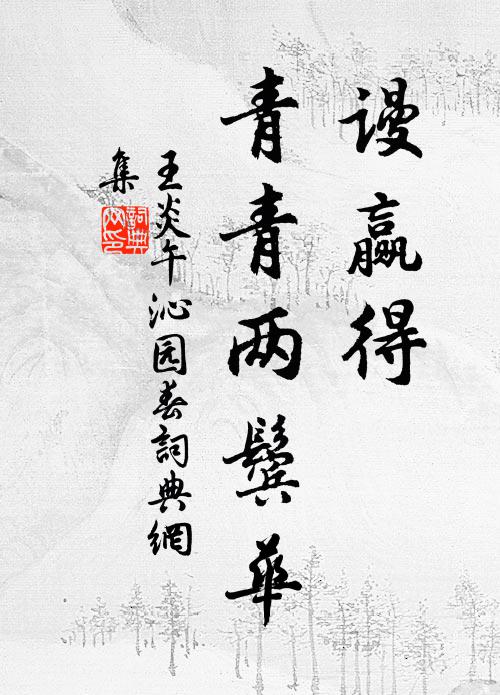 谩赢得
青青两鬓华
王炎午沁园春詞典網
集
詞典网印